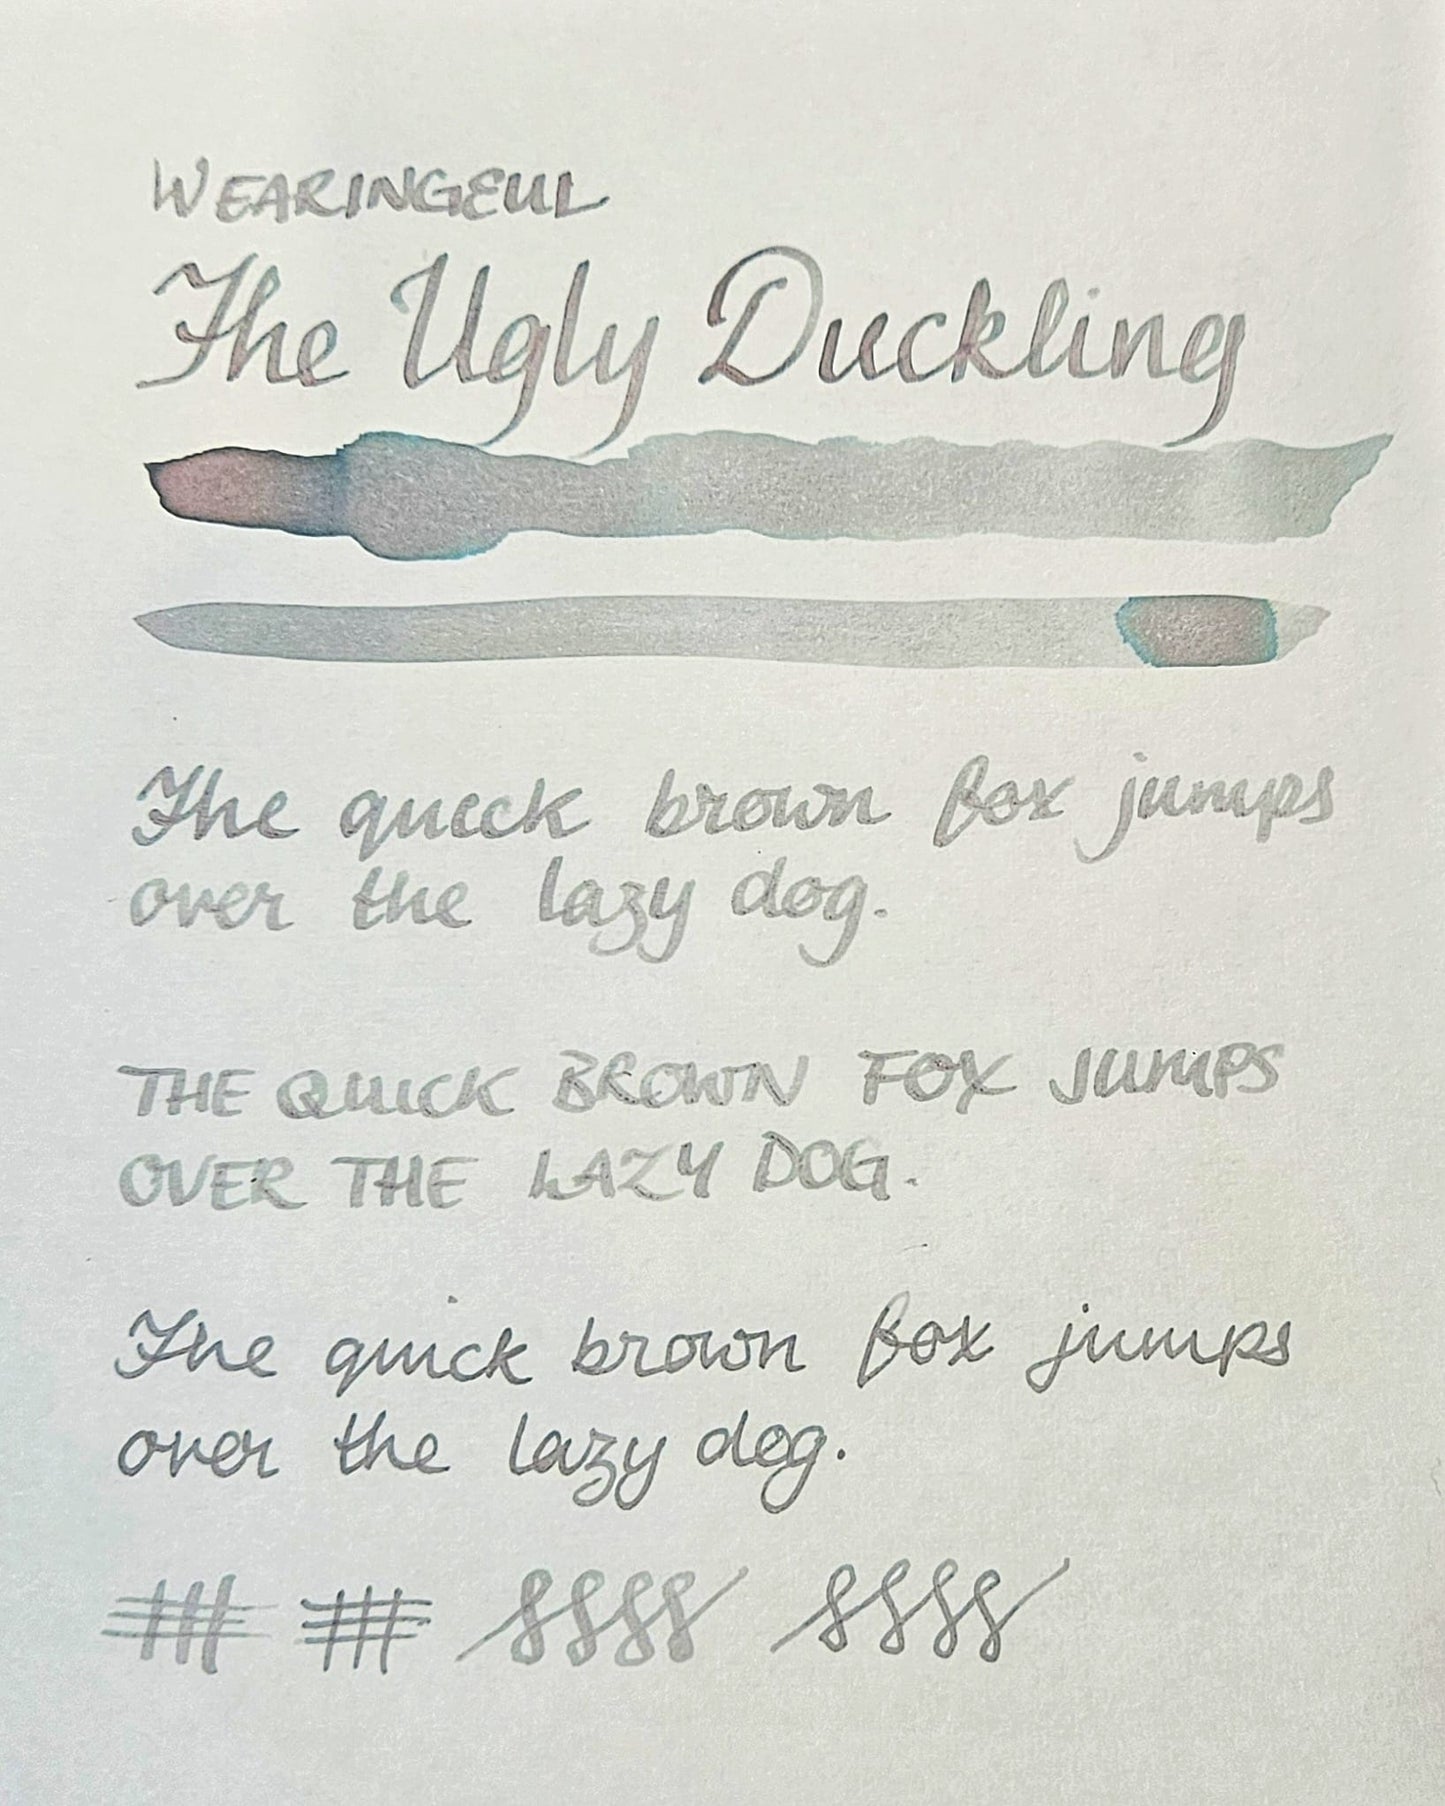 WEARINGEUL
The Ugly Duckling
The quick brown fox jumps
over the lazy dog.
THE QUICK BROWN FOX JUMPS
OVER THE LAZY DOG.
The quick brown fox jumps
over the lazy dog.